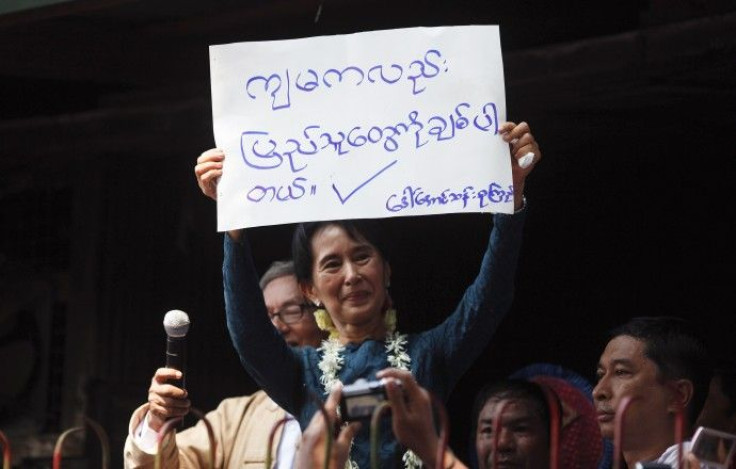 ကျမကလည်း
ပြည်သူတွေကိုချစ်ပါ
တယ်။ ✓ ဒေါ်အောင်ဆန်းစုကြည်